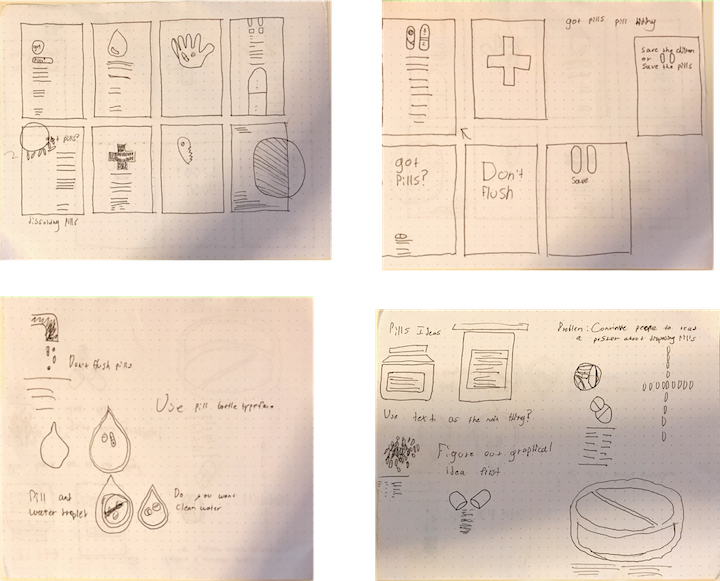 pills?
dissolving pills
got pills pill
Save the children
or
Save the pills
got
Pills?
Don't
flush
Save
Don't flush pills
Use pill bottle typeface
Pill and
water droplet
Do you want
clean water
Pills Ideas
Problem: Convince people to read
a poster about disposing pills
Use text as the main thing?
Figure out graphical
idea first